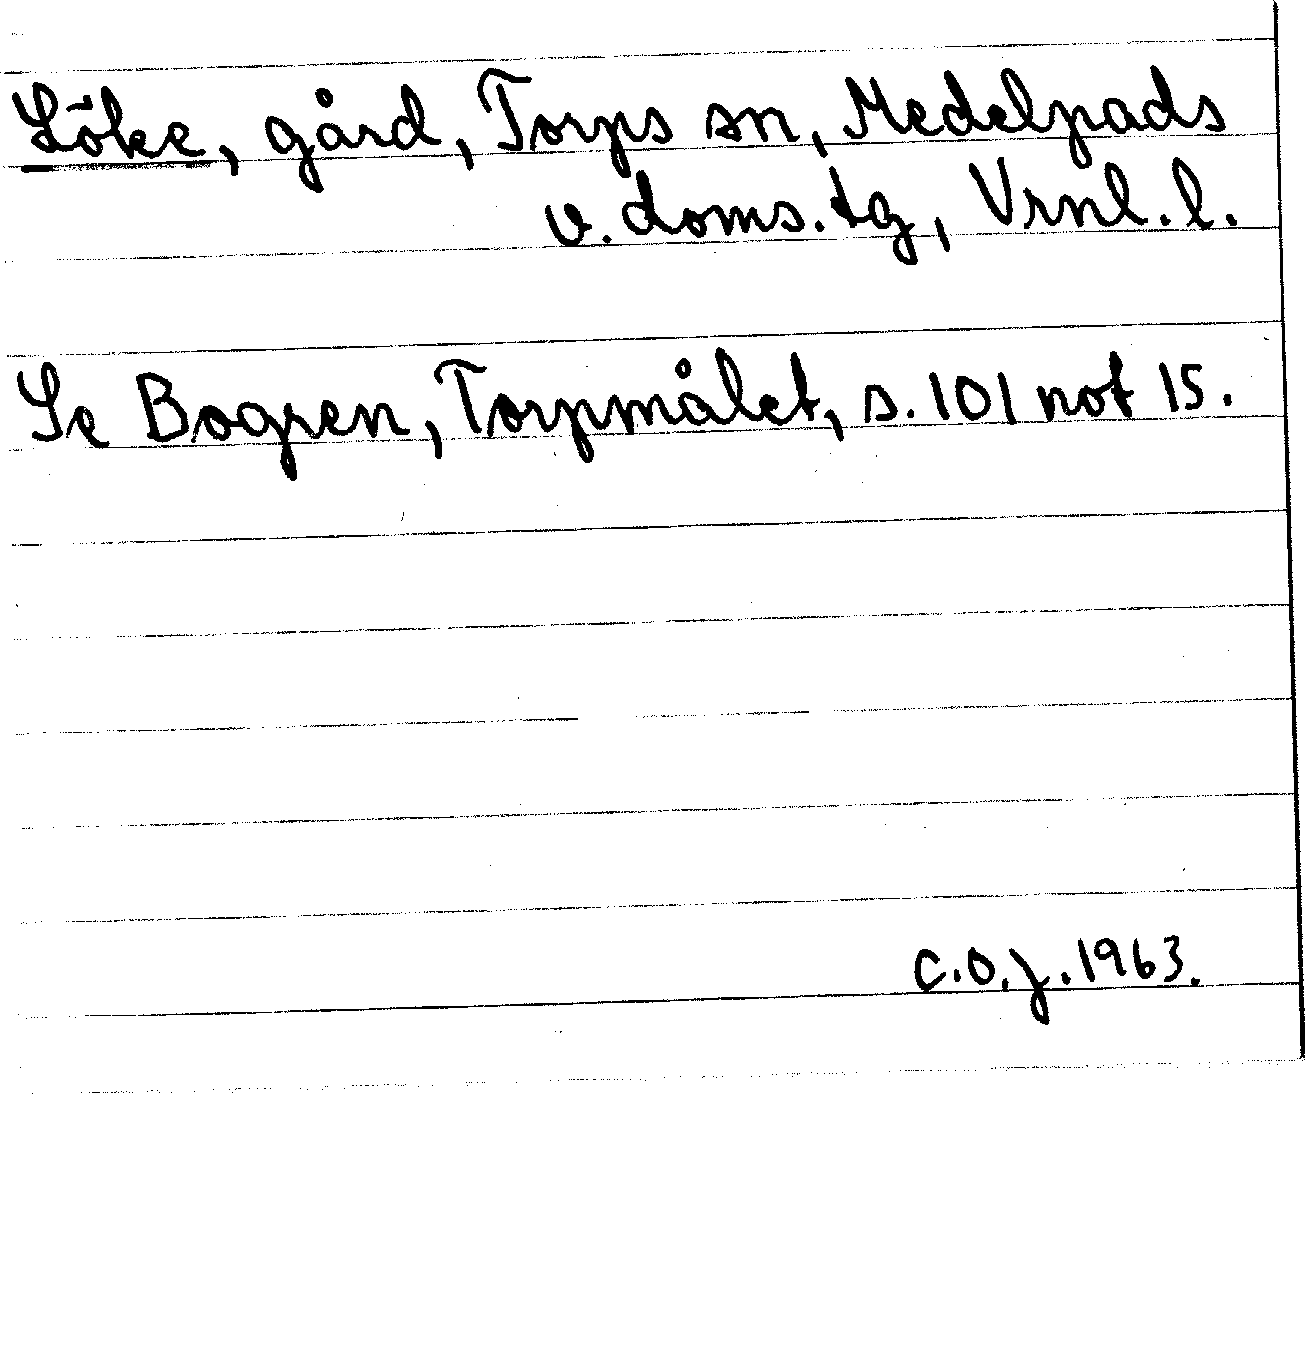 Löke, gård, Torps sn, Medelpads
v. doms. tg, Vrnl. l.
Se Bogren, Torpmålet, s. 101 not 15.
C.O.J. 1963.